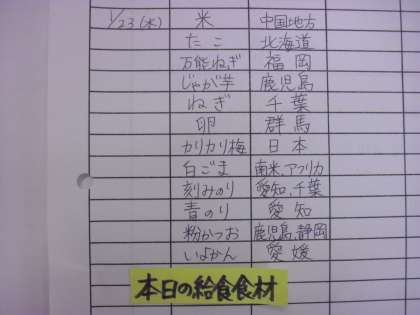 1/23(水) 米 中国地方
たこ 北海道
万能ねぎ 福岡
じゃが芋 鹿児島
ねぎ 千葉
卵 群馬
カリカリ梅 日本
白ごま 南米、アフリカ
刻みのり 愛知、千葉
青のり 愛知
粉かつお 鹿児島、静岡
いよかん 愛媛
本日の給食食材